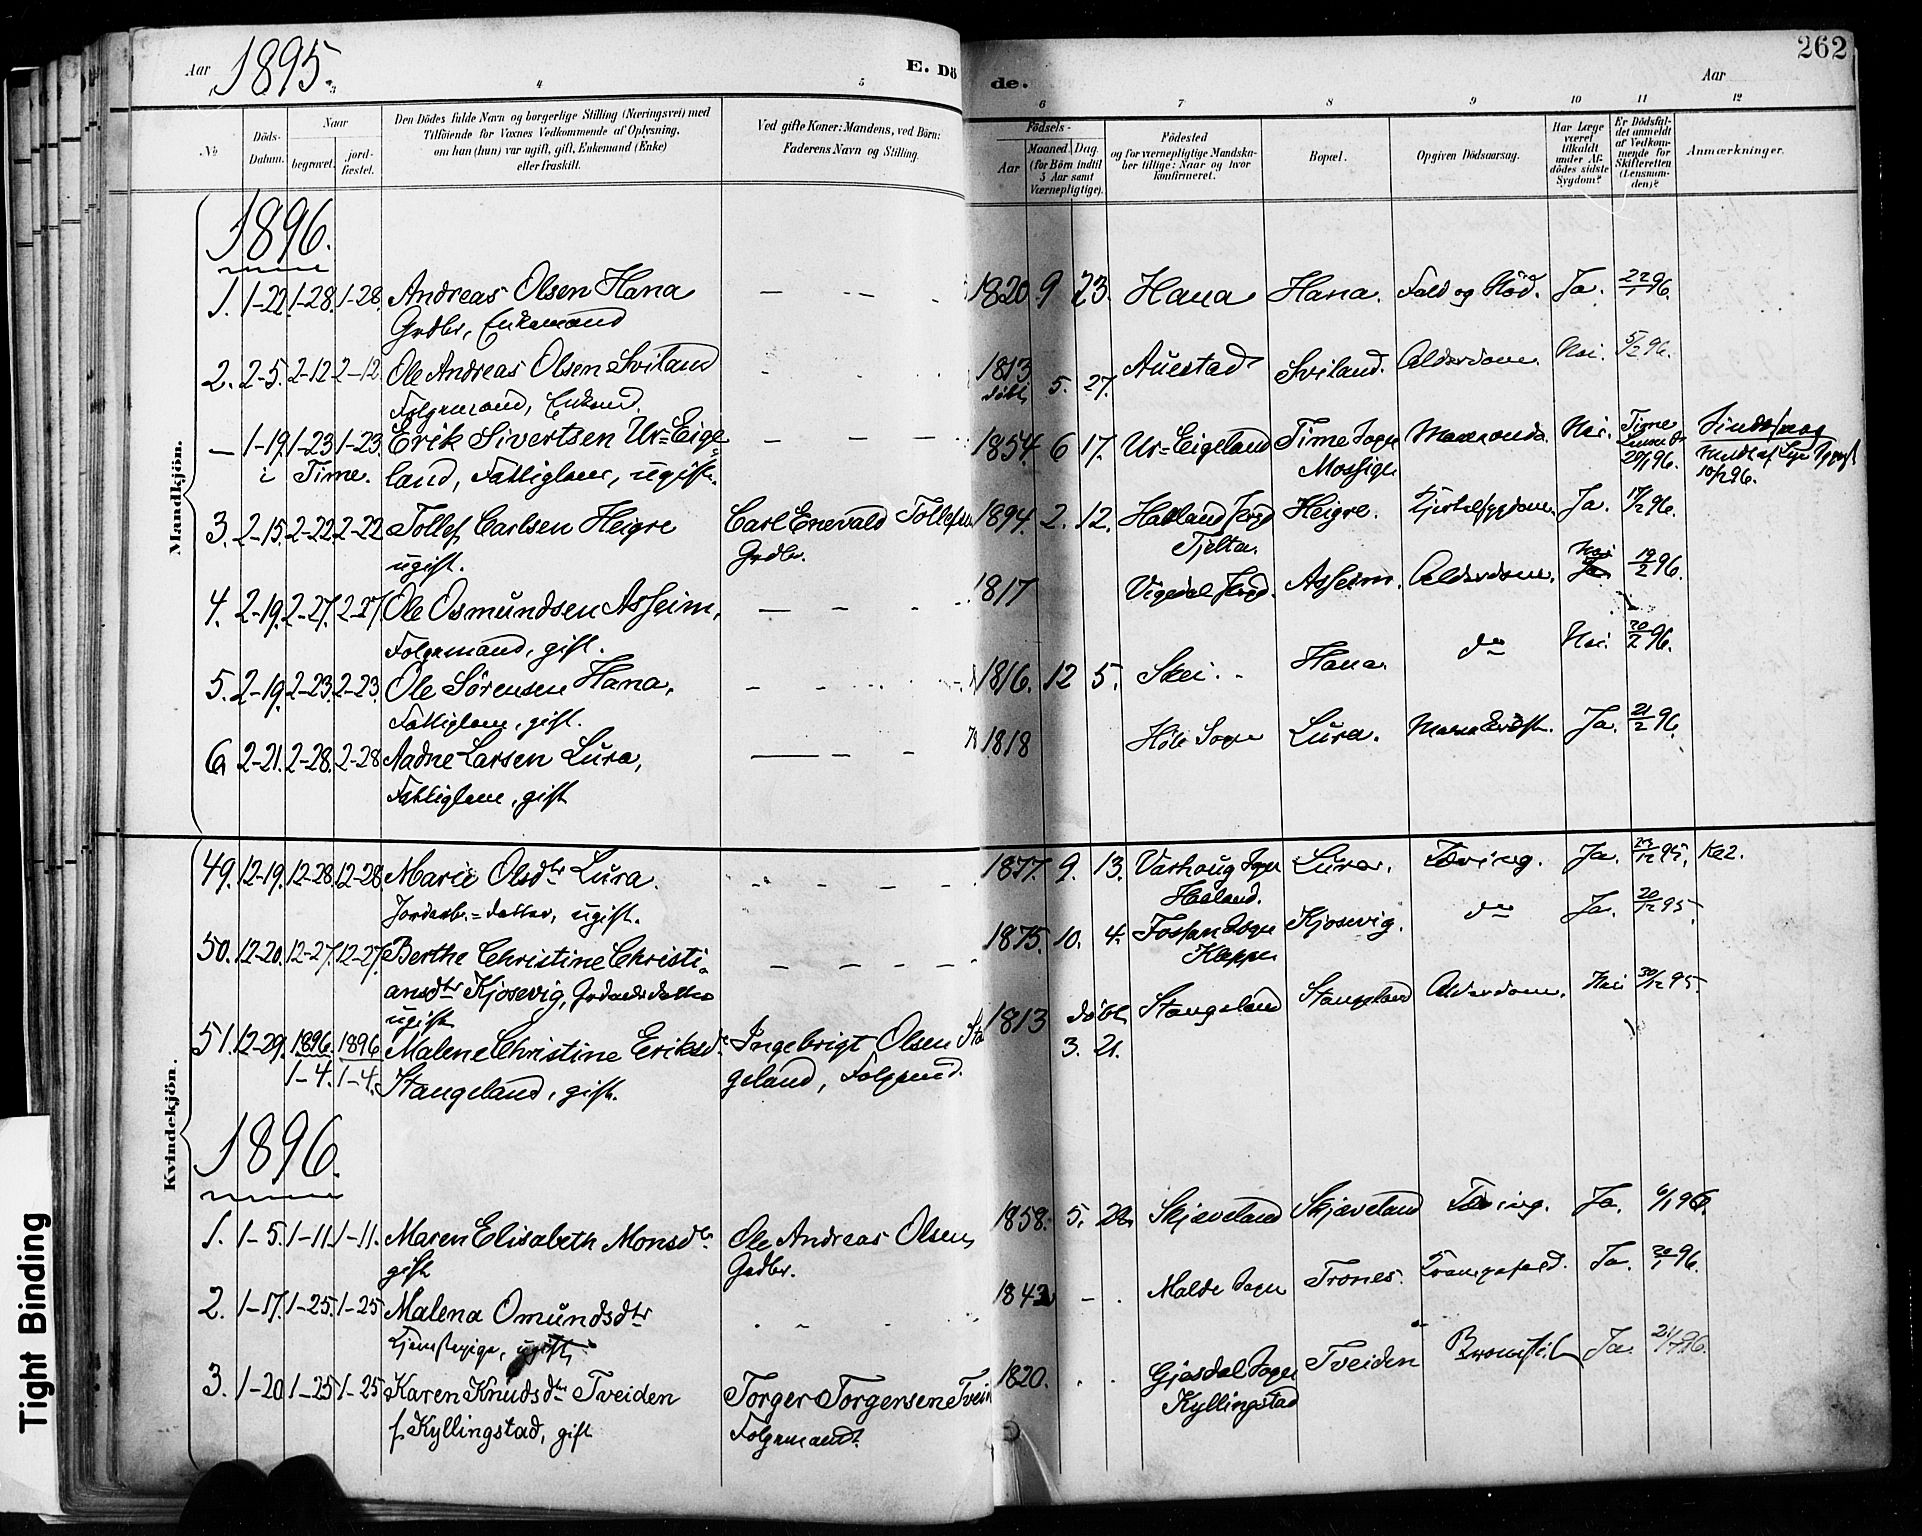 Aar 1895.
E. Dö
de.
Aar
262
3 4 5 6 7 8 9 10 11 12
№
Döds-Datum.
Naar
begravet.
jordfæstet.
Den Dödes fulde Navn og borgerlige Stilling (Næringsvei) med
Tilföiende for Voxnes Vedkommende af Oplysning,
om han (hun) var ugift, gift, Enkemand (Enke)
eller fraskilt.
Ved gifte Koner: Mandens, ved Börn:
Faderens Navn og Stilling.
Födsels-
Aar
Maaned. Dag.
(for Börn indtil
5 Aar samt
Værnepligtige).
Födested
og for værnepligtige Mandskaber tillige: Naar og hvor
konfirmeret.
Bopæl.
Opgiven Dödsaarsag.
Har Læge
været
tilkaldt
under Afdödes sidste
Sygdom?
Er Dödsfaldet anmeldt
af Vedkommende for
Skifteretten
(Lensmanden)?
Anmærkninger.
Mandkjön.
1896.
1. 1-22. 1-28. 1-28. Andreas Olsen Hana — — 1820. 9 23. Hana Hana. Ja. 22/1 96.
Grdbr, Enkemand
2. 2-5. 2-12 2-12. Ole Andreas Olsen Sviland 1813 döbt 5. 27. Auestad Sviland. Alderdom. Nei. 5/2 96.
Folgemand, Enkemd.
— 1-19. 1-23 1-23. Erik Sivertsen Ur-Eige- — — — 1854. 6 17. Ur-Eigeland Time Sogn Nei. Time
i Time. land, Fattiglem, ugift. Mossige 20/1 96. 10/2 96.
3. 2-15. 2-22. 2-22 Tollef Carlsen Heigre Carl Enevald Tollefsen 1894. 2. 12. Haaland Prgd Heigre. Ja. 17/2 96.
ugift. Grdbr. Tjelta.
4. 2-19. 2-27. 2-27. Ole Osmundsen Asheim, — — 1817 Vigedal Prgd. Asheim. Alderdom. Nei 19/2 96.
Folgemand, gift.
5. 2-19. 2-23. 2-23. Ole Sörensen Hana, — — 1816. 12 5. Skei. Hana. do Nei. 20/2 96.
Fattiglem, gift.
6. 2-21. 2-28. 2-28. Aadne Larsen Lura, — — 1818 Höle Sogn Lura. Ja. 21/2 96.
Fattiglem, gift
Kvindekjön.
49. 12-19. 12-28. 12-28 Marie Olsdtr Lura. — — 1877. 9. 13. Varhoug Sogn Lura. Tæring. Ja. 23/12 95.
datter, ugift. Haaland.
50. 12-20. 12-27. 12-27. Berthe Christine Christi- — — 1875. 10. 4. Fossan Sogn Kjosevig. do Ja. 20/12 95.
ansdtr Kjosevig, datter
ugift
51. 12-29. 1896. 1896 Malene Christine Eriksdr Ingebrigt Olsen Sta 1813 döbt Stangeland Stangeland Alderdom. Nei 30/12 95.
1-4. 1-4. Stangeland, gift. geland, Folgemd. 3. 21.
1896.
1. 1-5. 1-11. 1-11. Maren Elisabeth Monsdtr Ole Andreas Olsen, 1858. 5. Skjæveland Skjæveland Tæring. Ja. 6/1 96.
gift Grdbr.
2. 1-17. 1-25. 1-25 Malena Omundsdtr 1843 Malde Sogn Trones. Ja. 20/1 96.
Tjenestepige, ugift,
3. 1-20 1-25 1-25 Karen Knudsdtr Tveiden Torger Torgersen Tvei 1820. Gjæsdal Sogn Tveiden Ja. 21/1 96.
f. Kyllingstad, gift Folgemand. Kyllingstad
Tight Binding